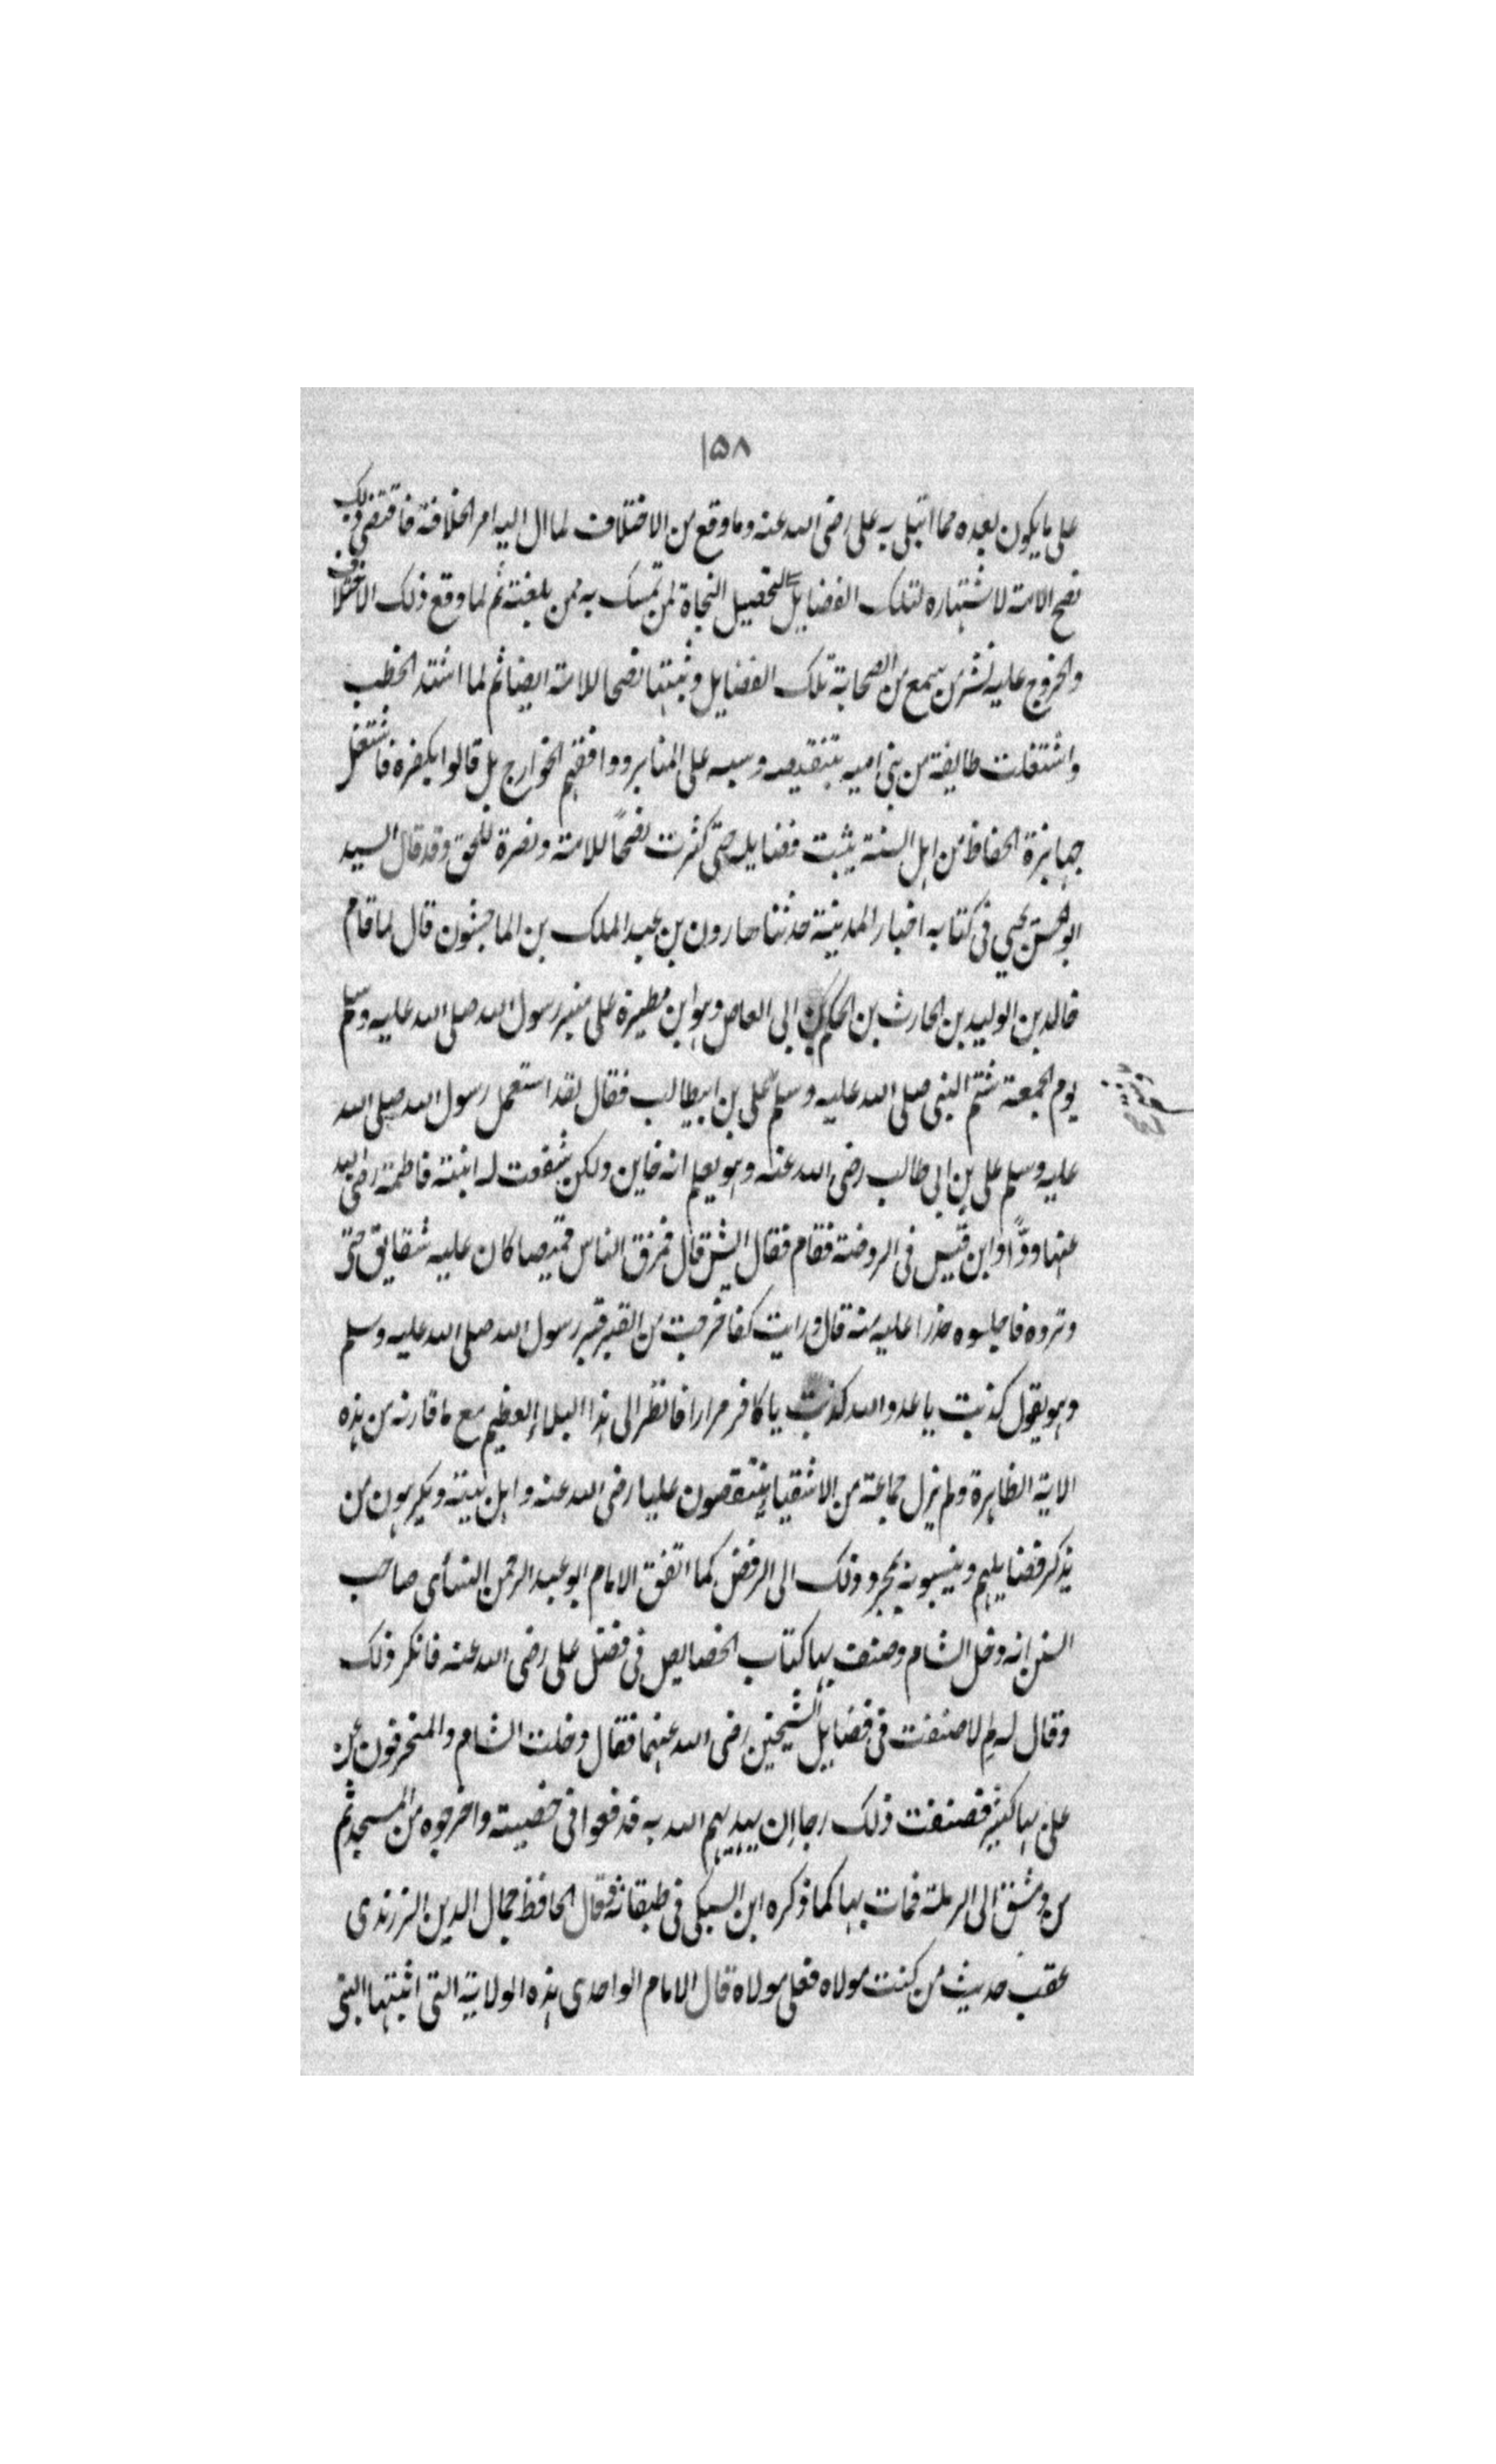 ١٥٨
على ما يكون بعده مما ابتلى به على رضى الله عنه وما وقع من الاختلاف لما ال اليه امر الخلافة فاقتضى ذلك
نصح الامة لاشتهاره لتلك الفضايل لتحصيل النجاة لمن تمسك به ممن بلغته ثم لما وقع ذلك الاختلاف
والخروج عليه نشر من سمع من الصحابة تلك الفضايل وثبتها نصحا للامة ايضا ثم لما اشتد الخطب
واشتغلت طايفة من بنى اميه بتنقيصه وسبه على المنابر ووافقهم الخوارج بل قالوا بكفره فاشتغل
جهابذة الحفاظ من اهل السنة يثبت فضايله حتى كثرت نصحاً للامة ونصرة للحق وقد قال السيد
ابو الحسن يحيى فى كتابه اخبار المدينة حدثنا هارون بن عبد الملك بن الماجشون قال لما قام
خالد بن الوليد بن الحارث بن الحكم بن ابى العاص وهو ابن مطيرة على منبر رسول الله صلى الله عليه وسلم
يوم الجمعة شتم النبى صلى الله عليه وسلم على بن ابيطالب فقال لقد استعمل رسول الله صلى الله
عليه وسلم على بن ابى طالب رضى الله عنه وهو يعلم انه خاين ولكن شفعت له ابنته فاطمة رضى الله
عنها وداود ابن قيس فى الروضة فقام فقال اليش قال فمزق الناس قميصا كان عليه شقايق حتى
وتروه فاجلسوه حذرا عليه منه قال ورايت كفا خرجت من القبر قبر رسول الله صلى الله عليه وسلم
وهو يقول كذبت يا عدو الله كذبت يا كافر مرارا فانظر الى هذا البلاء العظيم مع ما قارنه من هذه
الاية الظاهرة ولم يزل جماعة من الاشقياء ينتقصون عليا رضى الله عنه واهل بيته ويكرهون من
يذكر فضايلهم وينسبونه بمجرد ذلك الى الرفض كما اتفق الامام ابو عبد الرحمن النسأى صاحب
السنن انه دخل الشام وصنف بها كتاب الخصايص فى فضل على رضى الله عنه فانكر ذلك
وقال له لم لا صنفت فى فضايل الشيخين رضى الله عنهما فقال دخلت الشام والمنحرفون عن
على بها كثير فصنفت ذلك رجا ان يهديهم الله به فدفعوا فى خصيته واخرجوه من المسجد ثم
من دمشق الى الرملة فمات بها كما ذكره ابن السبكى فى طبقاته وقال الحافظ جمال الدين الزرندى
عقب حديث من كنت مولاه فعلى مولاه قال الامام الواحدى هذه الولاية التى اثبتها النبى